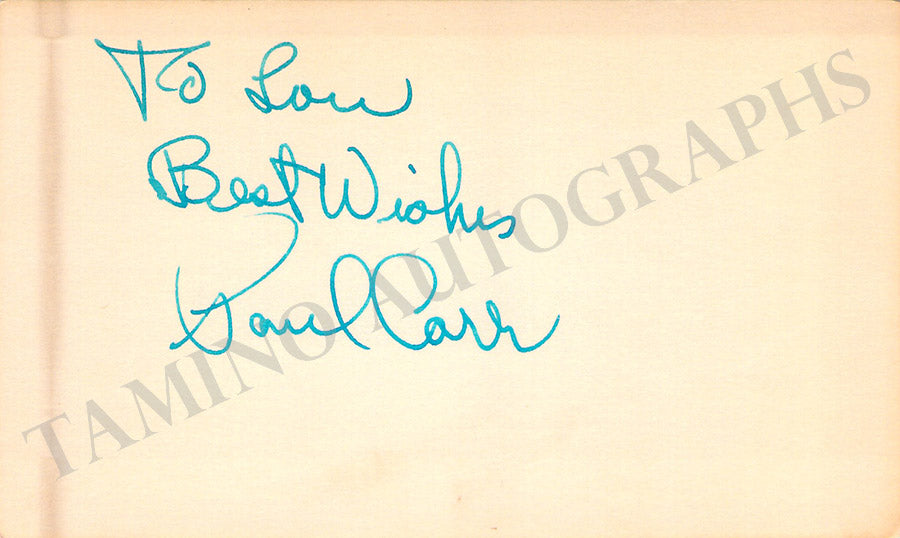 To Lou
Best Wishes
Paul Carr
TAMINO AUTOGRAPHS